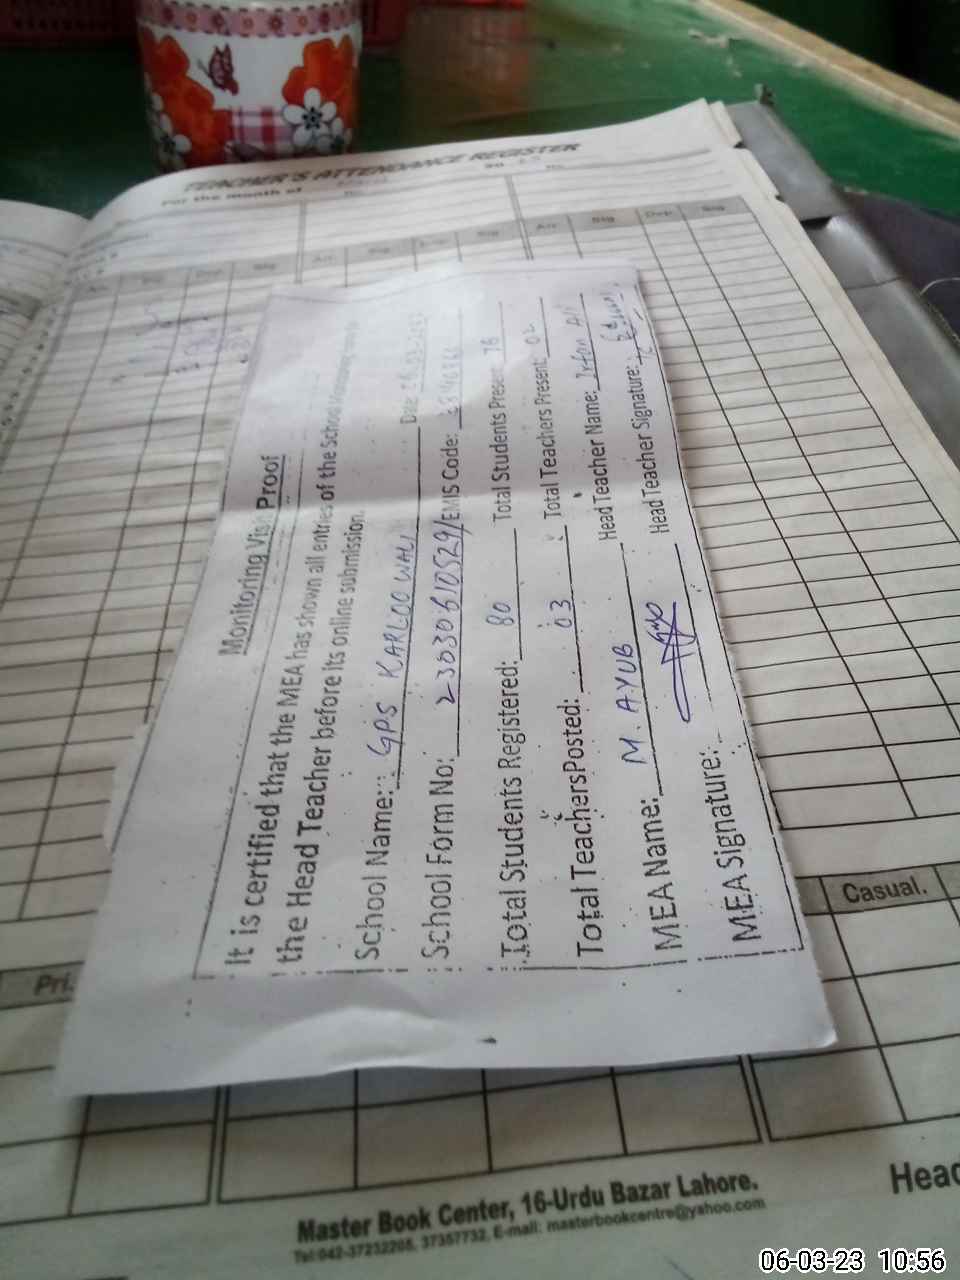 TEACHER'S ATTENDANCE REGISTER
For the month of
Monitoring Visit Proof
It is certified that the MEA has shown all entries of the School Monitoring
the Head Teacher before its online submission.
School Name: GPS KARLOO WALI Date:
School Form No: 2303061052 9/ EMIS Code:
Total Students Registered: 80 Total Students Present: 76
Total Teachers Posted: 03 Total Teachers Present: 02
MEA Name: M. AYUB Head Teacher Name: Irfan Ali
MEA Signature: Head Teacher Signature:
Pri.
Casual.
Head
Master Book Center, 16-Urdu Bazar Lahore.
Tel:042-37232205, 37357732, E-mail: masterbookcentre@yahoo.com
06-03-23 10:56